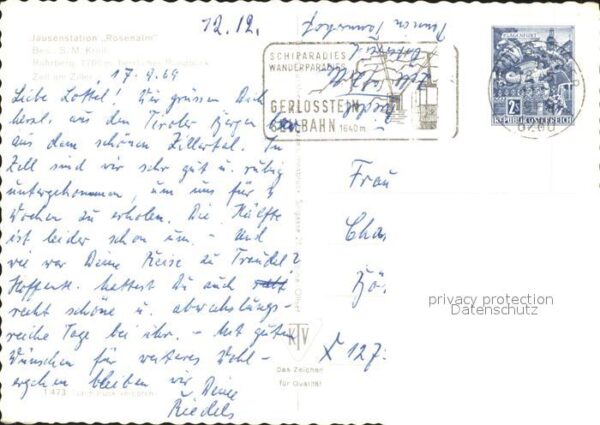 12.12.
Jausenstation „Rosenalm"
Bes.: S. M. Kröll
Zell am Ziller
17.9.69
Liebe Lottel! Wir grüssen Dich
herzl. aus den Tiroler Bergen
aus dem schönen Zillertal. In
Zell sind wir sehr gut u. ruhig
untergekommen, um uns für 3
Wochen zu erholen. Die Hälfte
ist leider schon um. - Und
wie war Deine Reise zu Traudel?
Hoffentl. hattest Du auch
recht schöne u. abwechslungs-
reiche Tage bei ihr. - Mit guten
Wünschen für weiteres Wohl-
ergehen bleiben wir Deine
Riedels
SCHIPARADIES
WANDERPARADIES
GERLOSSTEIN
SEILBAHN 1640m
KLAGENFURT
2S
REPUBLIK ÖSTERREICH
6280
Frau
Cha
Kö
X 127
KTV
Das Zeichen
für Qualität
privacy protection
Datenschutz
1473